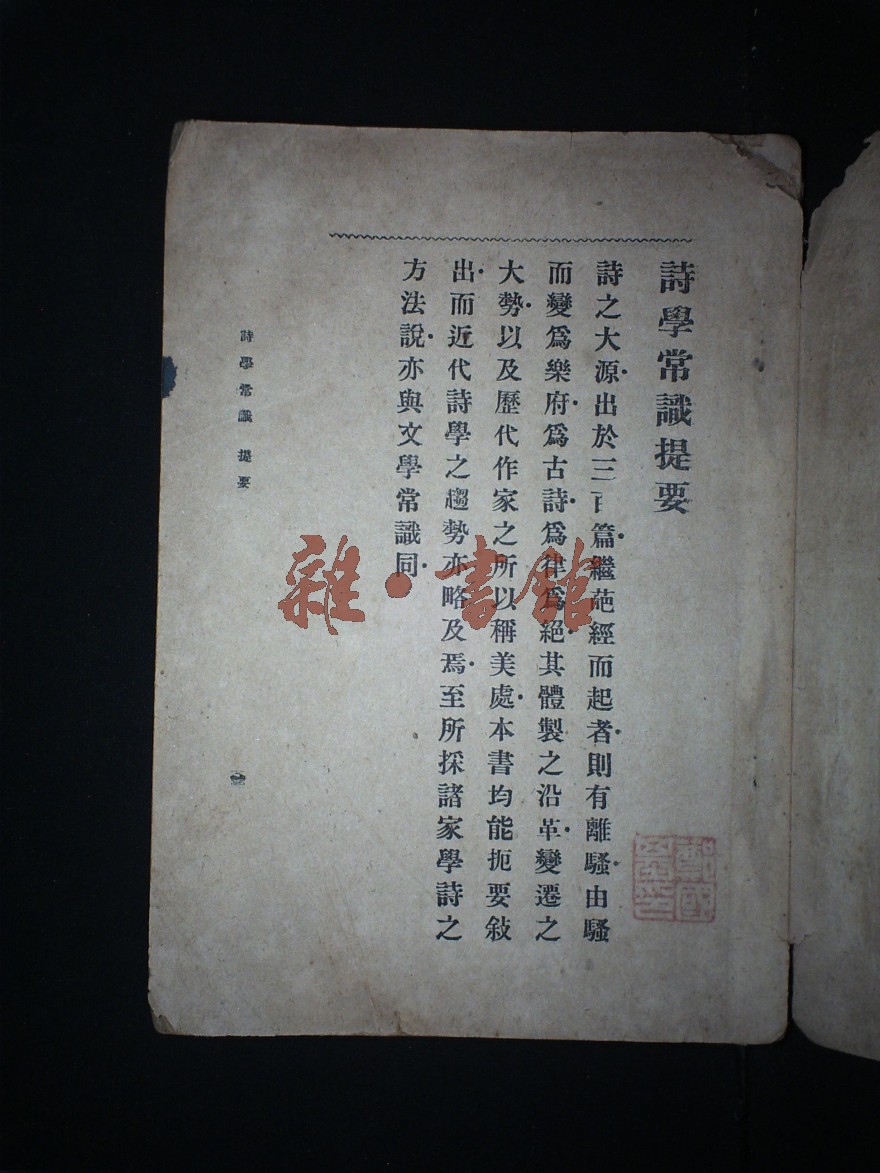 詩學常識提要
詩之大源·出於三百篇·繼葩經而起者·則有離騷·由騷
而變爲樂府·爲古詩·爲律爲絕·其體製之沿革·變遷之
大勢·以及歷代作家之所以稱美處·本書均能扼要敍
出·而近代詩學之趨勢亦略及焉·至所採諸家學詩之
方法說·亦與文學常識同·
詩學常識 提要
雜·書館